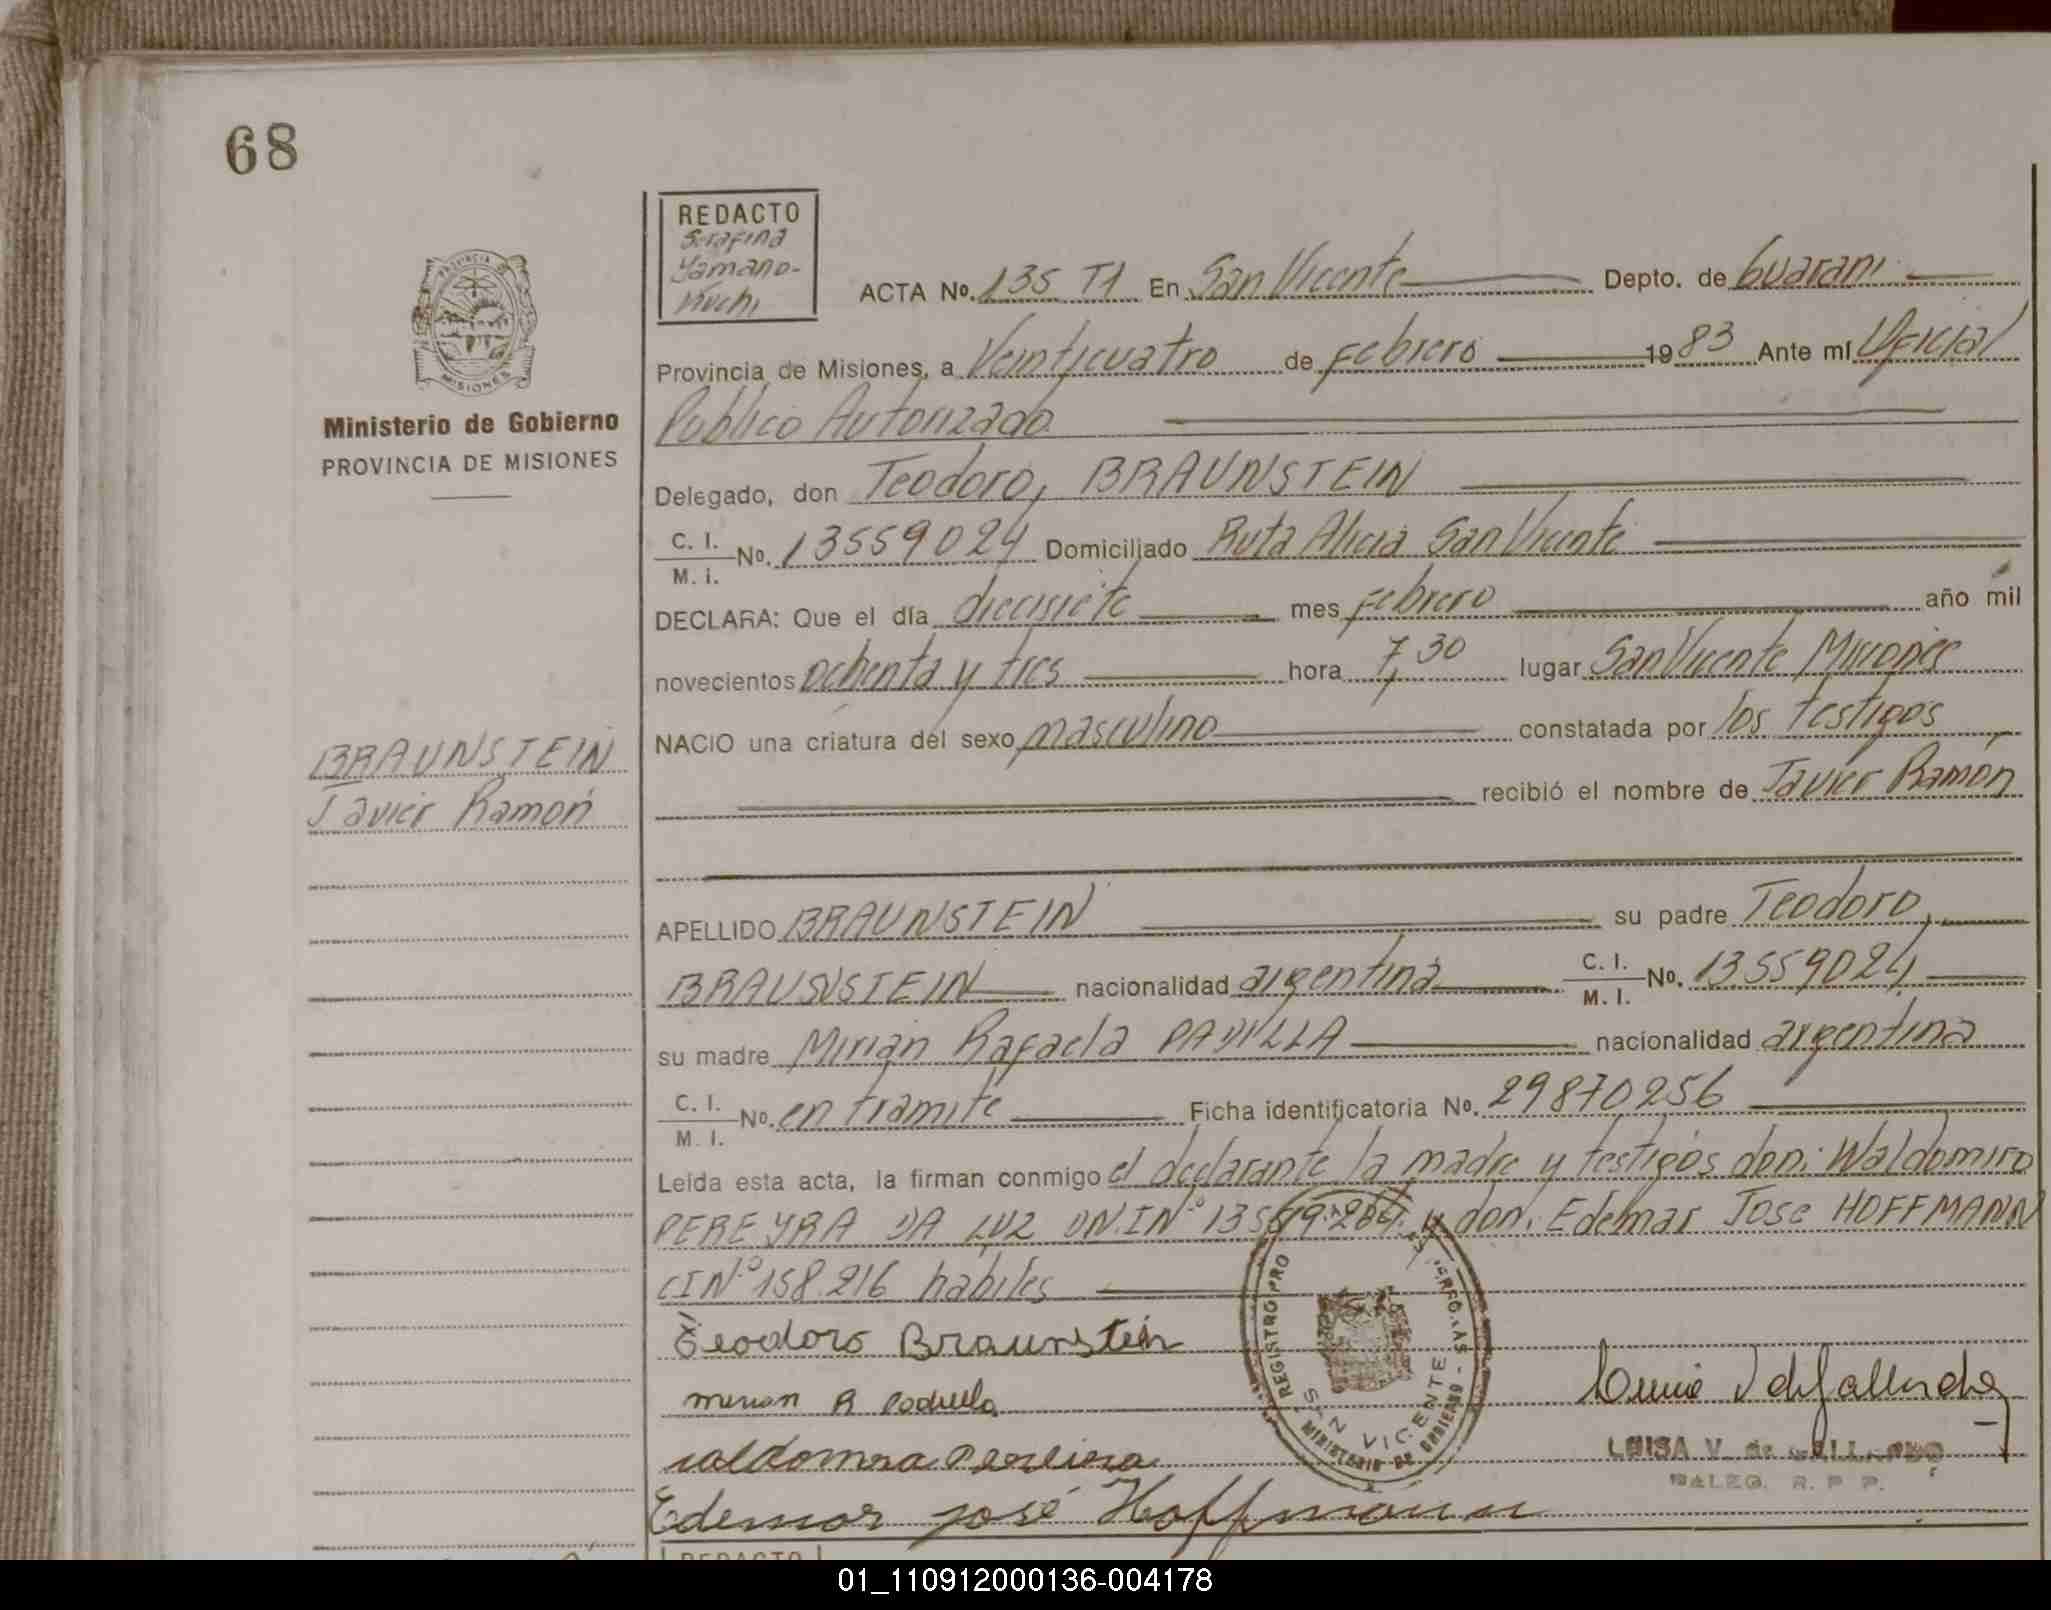 68
REDACTO
Serafina
Yamano-
kuchi
PROVINCIA DE
MISIONES
Ministerio de Gobierno
PROVINCIA DE MISIONES
ACTA No. 135 T1 En San Vicente Depto. de Guarani
Provincia de Misiones, a Veinticuatro de febrero 1983 Ante mí Oficial
Publico Autorizado
Delegado, don Teodoro, BRAUNSTEIN
C. I.
M. I. No. 13559024 Domiciliado Ruta Alicia San Vicente
DECLARA: Que el día diecisiete mes febrero año mil
novecientos ochenta y tres hora 7,30 lugar San Vicente Misiones
NACIO una criatura del sexo masculino constatada por los testigos
BRAUNSTEIN
Javier Ramón
recibió el nombre de Javier Ramón
APELLIDO BRAUNSTEIN su padre Teodoro,
BRAUNSTEIN nacionalidad argentina C. I.
M. I. No. 13.559024
su madre Mirian Rafaela PADILLA nacionalidad argentina
C. I.
M. I. No. en tramite Ficha identificatoria No. 29870256
Leída esta acta, la firman conmigo el declarante la madre y testigos don: Waldomiro
PEREYRA DA LUZ DN.I Nº y don: Edemar Jose HOFFMANN
CI Nº 158.216 habiles
Teodoro Braunstein
Mirian R Padilla
Valdomiro Pereira
Edemar José Hoffmann
REGISTRO PRO
SAN VICENTE
MINISTERIO DE GOBIERNO
LUISA V. de GALLARDO
DALEG. R. P. P.
REDACTO
01_110912000136-004178